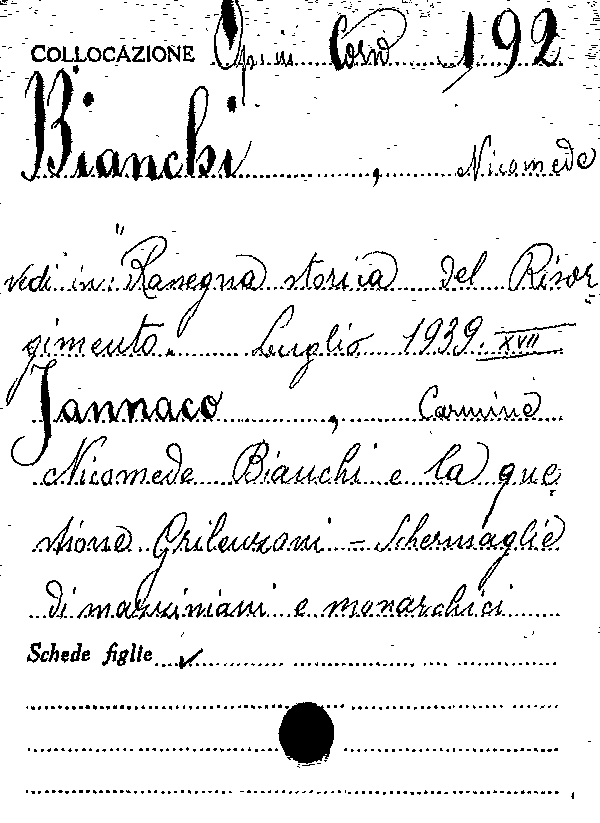 COLLOCAZIONE Op. in Cors 192
Bianchi, Nicomede
vedi in: "Rassegna storica del Risor
gimento. Luglio 1939. XVII
Jannaco, Carmine
Nicomede Bianchi e la que
stione Grilenzoni - Schermaglie
di mazziniani e monarchici
Schede figlie ✓